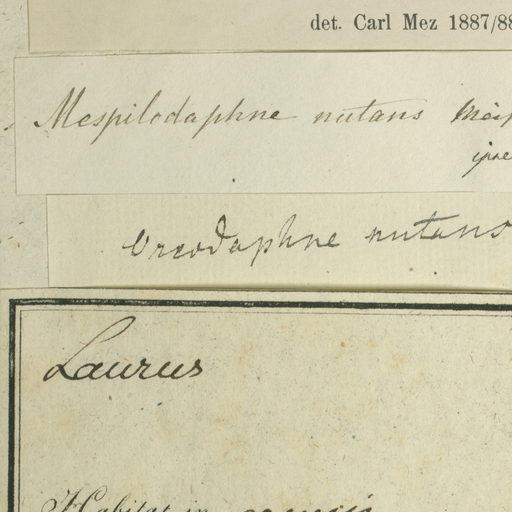 det. Carl Mez 1887/88
Mespilodaphne nutans
Oreodaphne nutans
Laurus
Habitat in